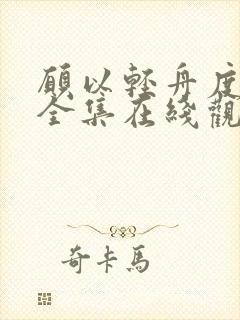 願以輕舟度
全集在綫觀
奇卡馬